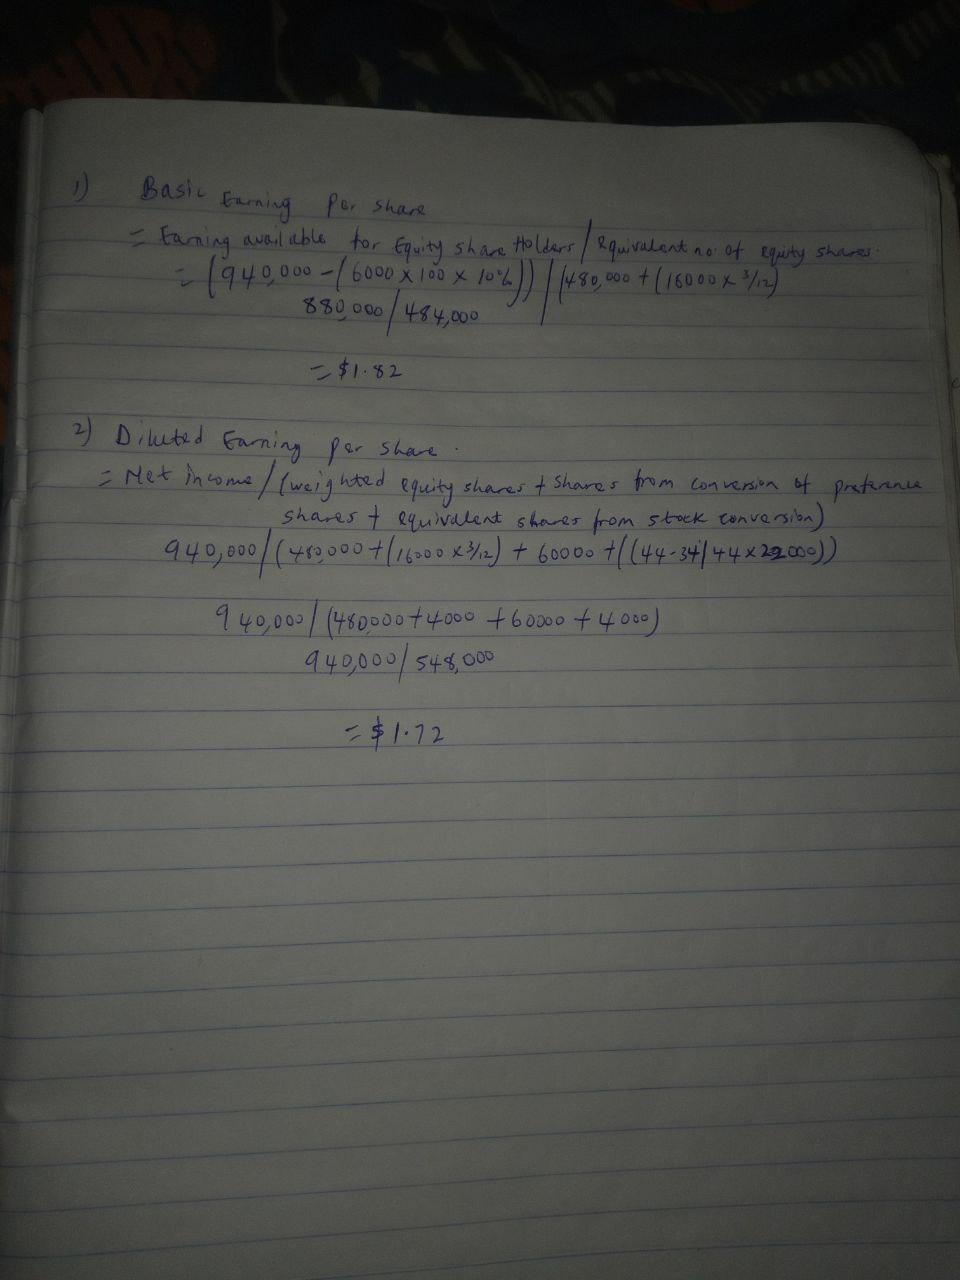 1) Basic Earning Per share
= Earning available for Equity share Holders / Equivalent no. of equity shares.
= (940,000 - (6000 x 100 x 10%)) / (480,000 + (16000 x 3/12)
880,000 / 484,000
= $1.82
2) Diluted Earning per share.
= Net income / (weighted equity shares + Shares from conversion of preference
shares + equivalent shares from stock conversion)
940,000 / (480,000 + (16000 x 3/12) + 60000 + ((44-34/44 x 22000))
940,000 / (480,000 + 4000 + 60000 + 4000)
940,000 / 548,000
= $1.72